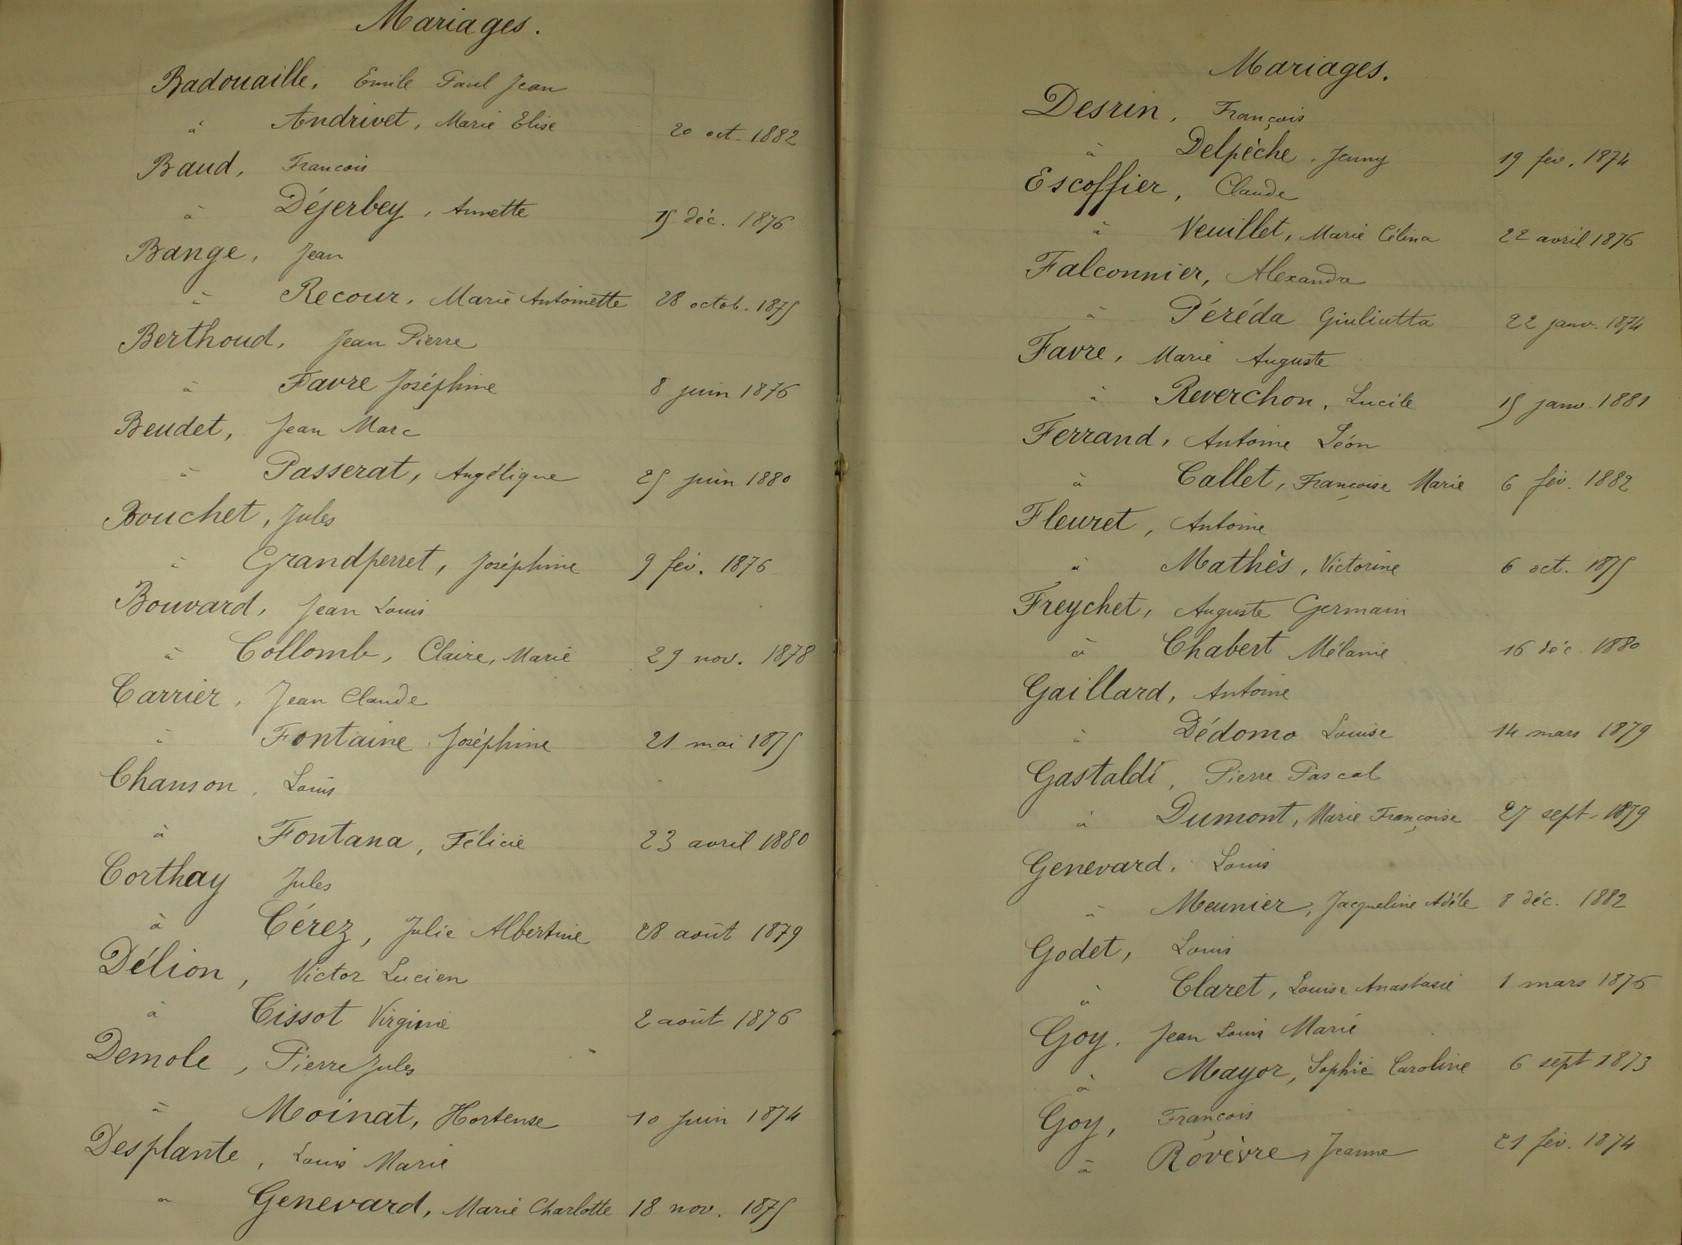 Mariages.
Badouaille, Emile Paul Jean
à Andrivet, Marie Elise 20 oct. 1882
Baud, Francois
à Déjerbey, Annette 15 déc. 1876
Bange, Jean
à Recour, Marie Antoinette 28 octob. 1875
Berthoud, Jean Pierre
à Favre Joséphine 8 juin 1876
Beudet, Jean Marc
à Passerat, Angélique 25 juin 1880
Bouchet, Jules
à Grandperret, Joséphine 9 fév. 1876
Bouvard, Jean Louis
à Collomb, Claire, Marie 29 nov. 1878
Carrier, Jean Claude
à Fontaine Joséphine 21 mai 1875
Chanson, Louis
à Fontana, Félicie 23 avril 1880
Corthay Jules
à Cérez, Julie Albertine 28 août 1879
Délion, Victor Lucien
à Tissot Virginie 2 août 1876
Demole, Pierre Jules
à Moinat, Hortense 10 juin 1874
Desplante, Louis Marie
à Genevard, Marie Charlotte 18 nov. 1875
Mariages.
Desrin, François
à Delpèche, Jenny 19 fev. 1874
Escoffier, Claude
à Veuillet, Marie Célina 22 avril 1876
Falconnier, Alexandre
à Péréda Giulietta 22 janv. 1874
Favre, Marie Auguste
à Reverchon, Lucile 15 janv. 1881
Ferrand, Antoine Léon
à Callet, Françoise Marie 6 fév. 1882
Fleuret, Antoine
à Mathès, Victorine 6 oct. 1875
Freychet, Auguste Germain
à Chabert Mélanie 16 déc. 1880
Gaillard, Antoine
à Dédomo Louise 14 mars 1879
Gastaldi, Pierre Pascal
à Dumont, Marie Françoise 27 sept. 1879
Genevard, Louis
à Meunier, Jacqueline Adèle 8 déc. 1882
Godet, Louis
à Claret, Louise Anastasie 1 mars 1876
Goy, Jean Louis Marie
à Mayor, Sophie Caroline 6 sept 1873
Goy, François
à Rovèvre, Jeanne 21 fév. 1874